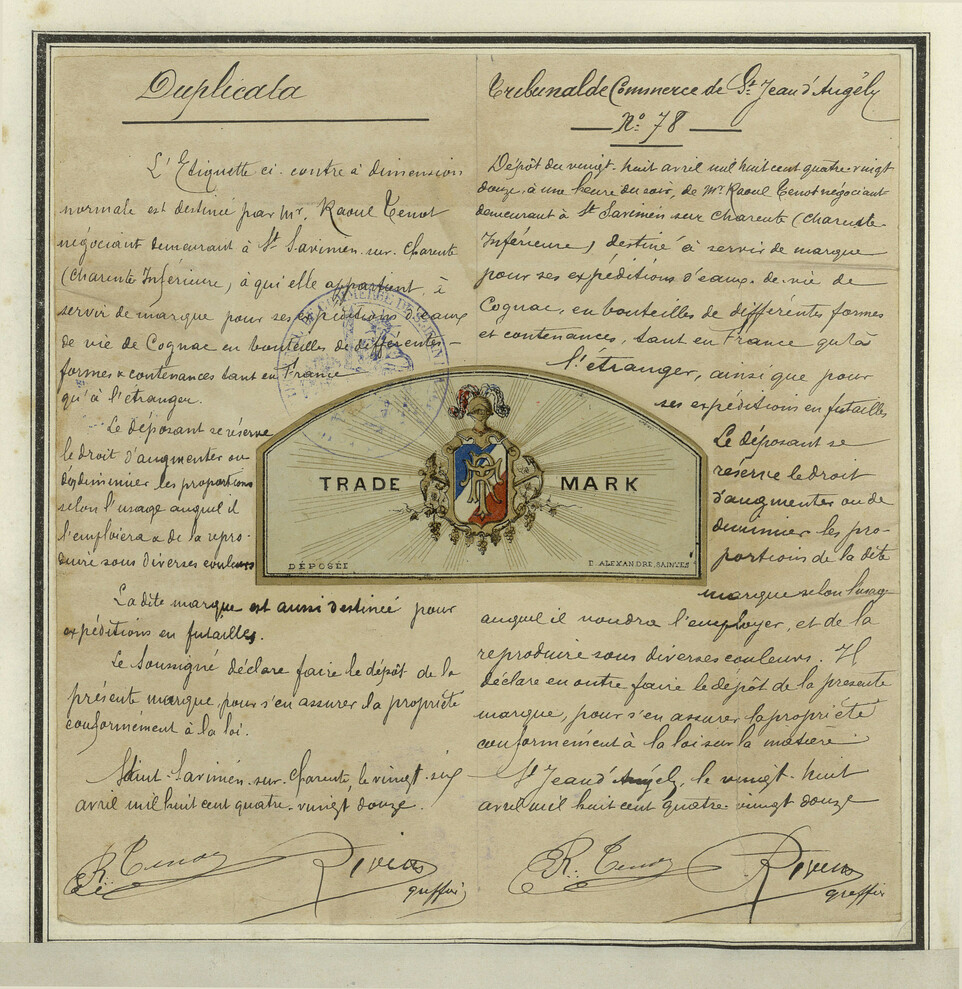 Duplicata
L'Etiquette ci-contre à dimension
normale est destinée par Mr. Raoul Tenot
négociant demeurant à St Savinien-sur-Charente
(Charente Inférieure, à qui elle appartient, à
servir de marque pour ses expéditions d'eaux
de vie de Cognac en bouteilles de différentes
formes & contenances tant en France
qu'à l'étranger.
Le déposant se réserve
le droit d'augmenter ou
de diminuer les proportions
selon l'usage auquel il
l'emploiera & de la repro-
duire sous diverses couleurs
La dite marque est aussi destinée pour
expéditions en futailles.
Le Soussigné déclare faire le dépôt de la
présente marque, pour s'en assurer la propriété
conformement à la loi.
Saint-Savinien-sur-Charente, le vingt-six
avril mil huit cent quatre-vingt douze.
R. Tenot
greffier
TRADE MARK
DÉPOSÉE
D. ALEXANDRE, SAINTES
Tribunal de Commerce de St Jean d'Angély
No 78
Dépôt du vingt-huit avril mil huit cent quatre-vingt
douze, à une heure du soir, de Mr. Raoul Tenot négociant
demeurant à St Savinien sur Charente (Charente-
Inférieure) destiné à servir de marque
pour ses expéditions d'eaux-de-vie de
Cognac, en bouteilles de différentes formes
et contenances, tant en France qu'à
l'étranger, ainsi que pour
ses expéditions en futailles
Le déposant se
réserve le droit
d'augmenter ou de
diminuer les pro-
portions de la dite
marque selon l'usage
auquel il voudra l'employer, et de la
reproduire sous diverses couleurs. Il
déclare en outre faire le dépôt de la presente
marque, pour s'en assurer la propriété
conformément à la loi sur la matière.
St Jean d'Angély, le vingt-huit
avril mil huit cent quatre-vingt douze
R. Tenot
greffier